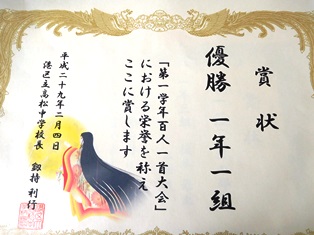 賞状
優勝 一年一組
「第一学年百人一首大会」
における栄誉を称え
ここに賞します
平成二十九年二月四日
港区立高松中学校長 釼持利行